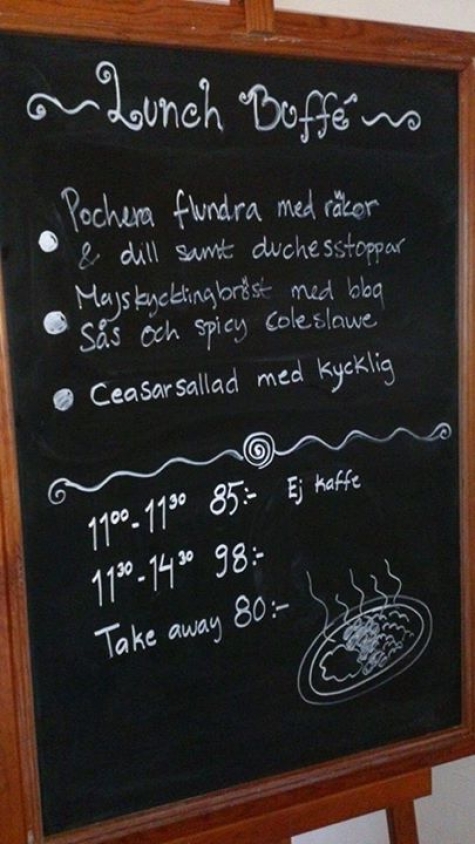 Lunch Buffé
Pochera flundra med räkor
& dill samt duchesstoppar
Majskycklingbröst med bbq
Sås och spicy Coleslawe
Ceasarsallad med kycklig
11⁰⁰-11³⁰ 85:- Ej kaffe
11³⁰-14³⁰ 98:-
Take away 80:-